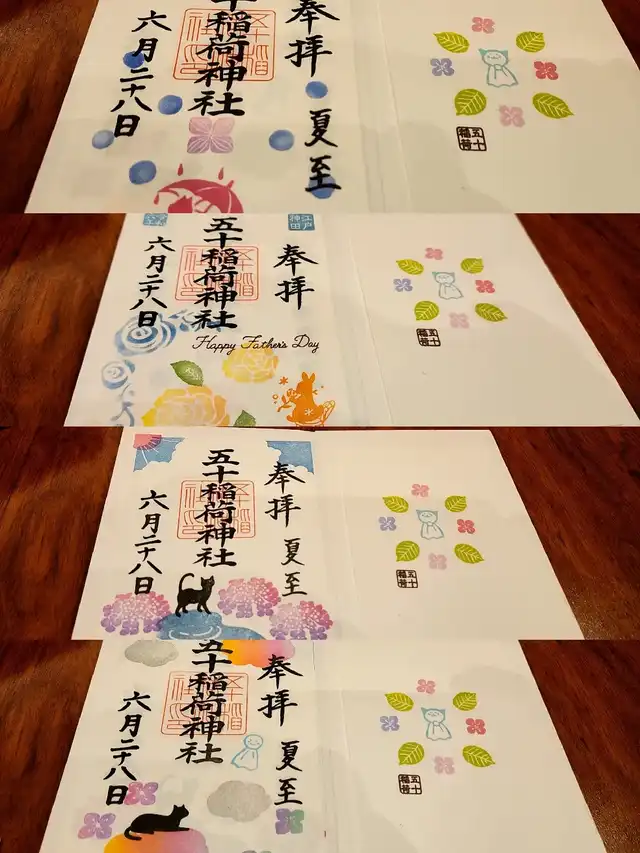 奉拝 夏至
十稲荷神社
六月二十八日
五十稲荷
江戸神田
奉拝
五十稲荷神社
六月二十八日
Happy Father's Day
五十稲荷
奉拝 夏至
五十稲荷神社
六月二十八日
五十稲荷
奉拝 夏至
五十稲荷神社
六月二十八日
五十稲荷